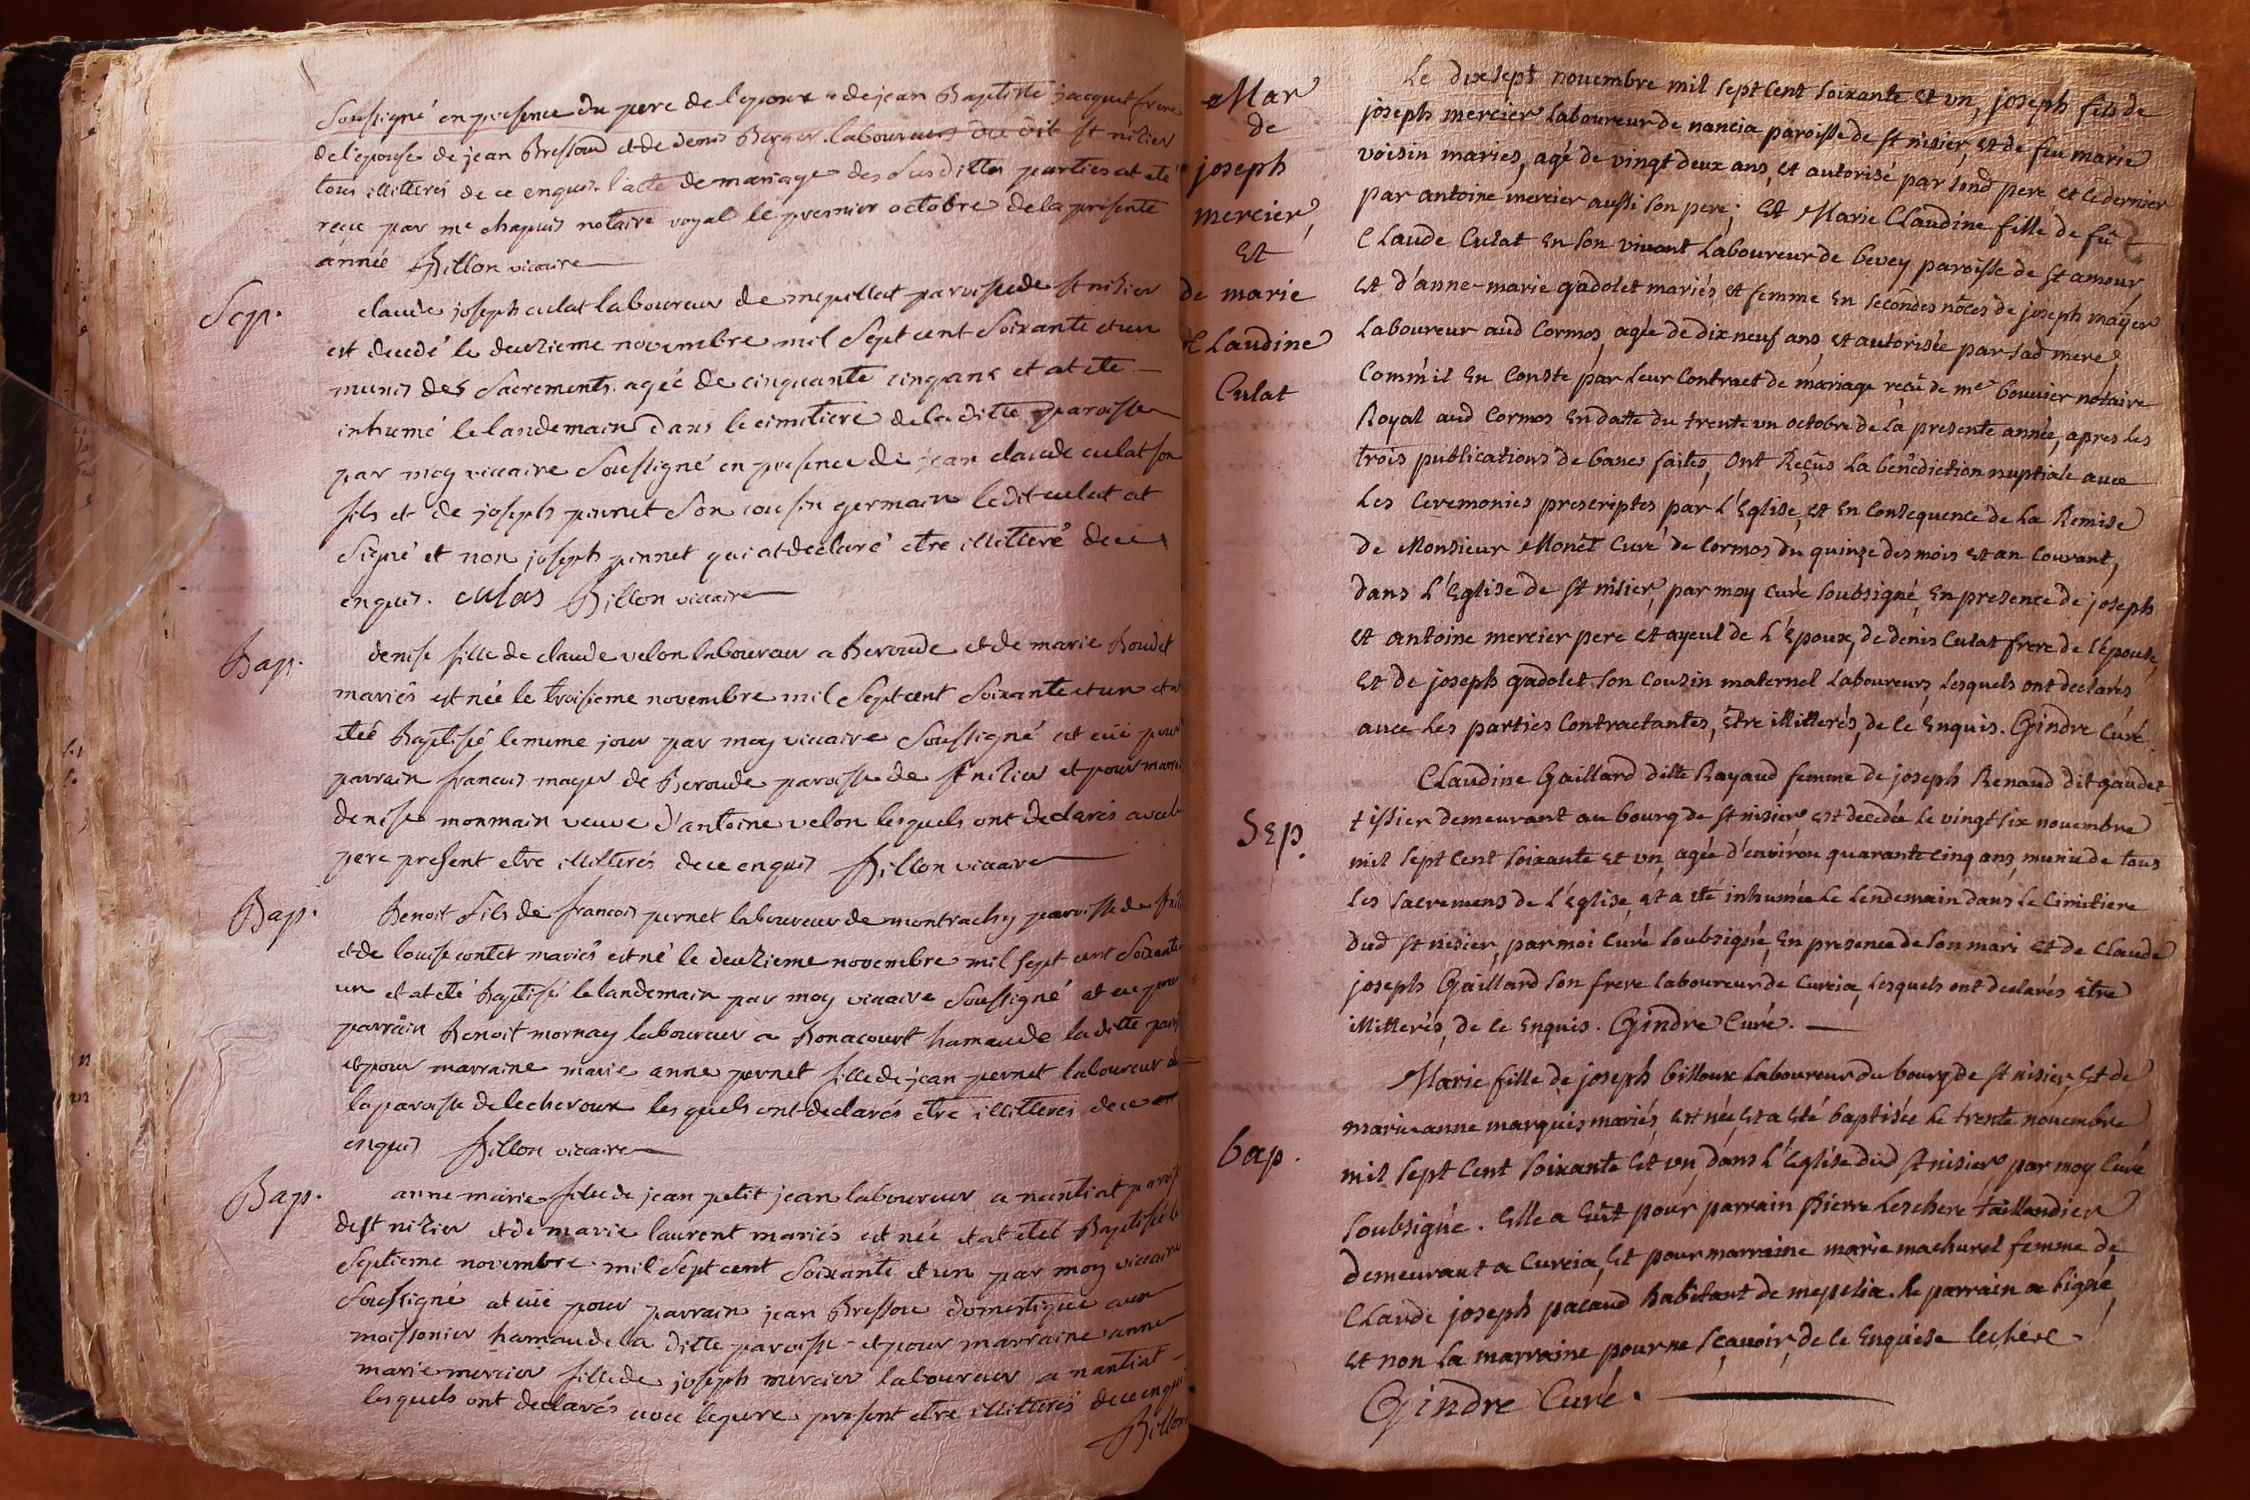 Soussigné en presence du pere de l'epoux & de jean Baptiste jacquet frere
de l'epouse de jean Bressoud et de denis Berger laboureurs du dit st nisier
tous illitterés de ce enquis. l'acte de mariage des susdittes parties at eté
reçu par me chapuis notaire royal le premier octobre de la presente
année Billon vicaire
Sep.
claude joseph culat laboureur de mepillat paroisse de st nisier
est decedé le deuzieme novembre mil Sept cent Soixante et un
munis des Sacrements. agée de cinquante cinq ans et at ete
inhumé le landemain dans le cimitiere de la ditte paroisse
par moy vicaire Soussigné en presence de jean claude culat son
fils et de joseph pinnet Son cousin germain ledit culat at
Signé et non joseph pinnet qui at declaré etre illitteré de ce
enquis. culas Billon vicaire
Bap.
denise fille de claude velon laboureur a Beroude et de marie Boudet
mariés est née le troisieme novembre mil Sept cent Soixante et un et at
etée Baptisée le meme jour par moy vicaire Soussigné at eüe pour
parrain francois mayer de Beroude paroisse de st nisier et pour marr
denise monmain veuve d'antoine velon lesquels ont declarés avec le
pere present etre illitterés de ce enquis Billon vicaire
Bap.
Benoit fils de francois pernet laboureur de montrachy paroisse de st ni
et de louise contet mariés est né le deuzieme novembre mil Sept cent Soixante
un et at eté Baptisé le landemain par moy vicaire Soussigné at eue pour
parrain Benoit mornay laboureur a Bonacourt hameau de la ditte par
et pour marraine marie anne pernet fille de jean pernet laboureur de
la paroisse de lecheroux lesquels ont declarés etre illitteres de ce
enquis Billon vicaire
Bap.
anne marie fille de jean petit jean laboureur a nantiat parois
de st nizier et de marie laurent mariés est née et at etée Baptisée le
Septieme novembre mil Sept cent Soixante et un par moy vicaire
Soussigné at eüe pour parrain jean Bressou domestique au
moissonier hameau de la ditte paroisse et pour marraine anne
marie mercier fille de joseph mercier laboureur a nantiat
lesquels ont declarés avec le pere present etre illitterés de ce enquis
Billon
Mar
de
joseph
mercier,
Et
de marie
Claudine
Culat
Le dix sept novembre mil sept cent soixante et un, joseph fils de
joseph mercier Laboureur de nancia paroisse de st nisier, et de feu marie
voisin mariés, agé de vingt deux ans, et autorisé par sond pere et ce dernier
par antoine mercier aussi son pere; Et Marie Claudine fille de fû
Claude Culat En son vivant Laboureur de bevey paroisse de st amour,
et d'anne-marie gadolet mariés et femme En secondes nôces de joseph maÿer
Laboureur aud Cormos, agée de dix neuf ans, et autorisée par sad mere,
Comm'il En Conste par leur Contract de mariage reçû de me bouvier notaire
Royal aud Cormos En datte du trente un octobre de la presente année, apres les
trois publications de bancs faites, Ont Reçus La benédiction nuptiale avec
les Ceremonies prescriptes par L'Eglise, et En Consequence de La Remise
de Monsieur Monêt Curé de Cormos du quinze des mois et an Courant,
dans L'Eglise de st nisier, par moy Curé soubsigné, En presence de joseph
et antoine mercier pere et ayeul de L'Epoux, de denis Culat frere de l'épouse,
Et de joseph gadolet son Cousin maternel Laboureurs, lesquels ont declarés
avec les parties Contractantes, Être illitterés, de ce Enquis. Gindre Curé.
Sep.
Claudine Gaillard ditte Rayaud femme de joseph Renaud dit gaudet
tissier demeurant au bourg de st nisier est decedée le vingt six novembre
mil sept cent soixante et un, agée d'environ quarante cinq ans, munie de tous
les sacremens de L'église, et a eté inhumée le lendemain dans le Cimitiere
dud st nisier, par moi Curé soubsigné, En presence de son mari et de Claude
joseph Gaillard son frere laboureur de Curcia, lesquels ont declarés être
illitterés, de ce Enquis. Gindre Curé.
bap.
Marie fille de joseph billoux Laboureur du bourg de st nisier, Et de
marie anne marquis mariés, est née et a eté baptisée le trente novembre
mil sept Cent soixante et un, dans L'Eglise dud st nisier, par moy Curé
soubsigné. Elle a Eüt pour parrain pierre Leschere taillandier
demeurant a Curcia, et pour marraine marie machurel femme de
Claude joseph pacaud habitant de mepelia. le parrain a signé,
et non la marraine pour ne sçavoir, de ce Enquise lechere.
Gindre Curé.